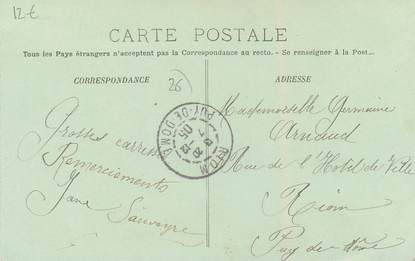 12€
CARTE POSTALE
Tous les Pays étrangers n'acceptent pas la Correspondance au recto. - Se renseigner à la Poste.
CORRESPONDANCE
ADRESSE
26
Grosses caresses
Remerciements
Jane
RIOM
PUY-DE-DOME
Mademoiselle Germaine
Arnaud
Rue de l'Hotel de Ville
Riom
Puy-de-Dôme